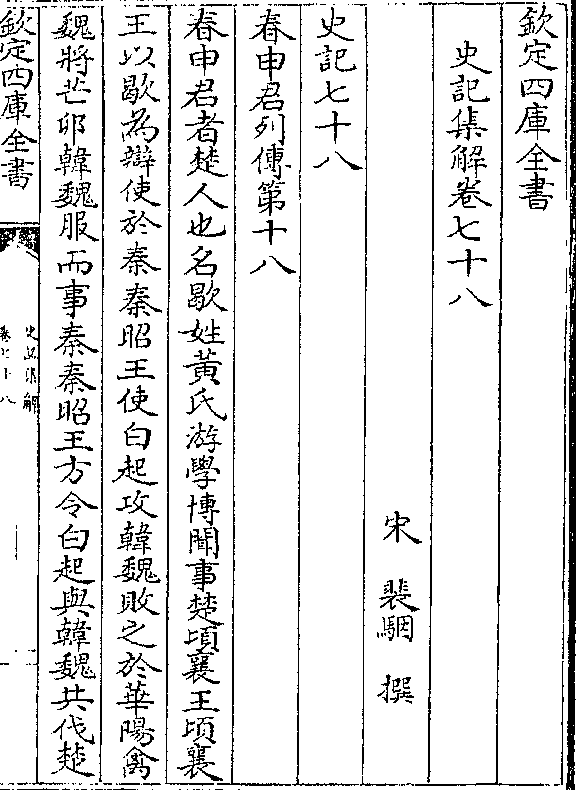 欽定四庫全書
史記集解卷七十八
宋 裴駰 撰
史記七十八
春申君列傳第十八
春申君者楚人也名歇姓黄氏游學博聞事楚頃襄王頃襄
王以歇為辯使於秦秦昭王使白起攻韓魏敗之於華陽禽
魏將芒卯韓魏服而事秦秦昭王方令白起與韓魏共伐楚
欽定四庫全書
史記集解
卷七十八